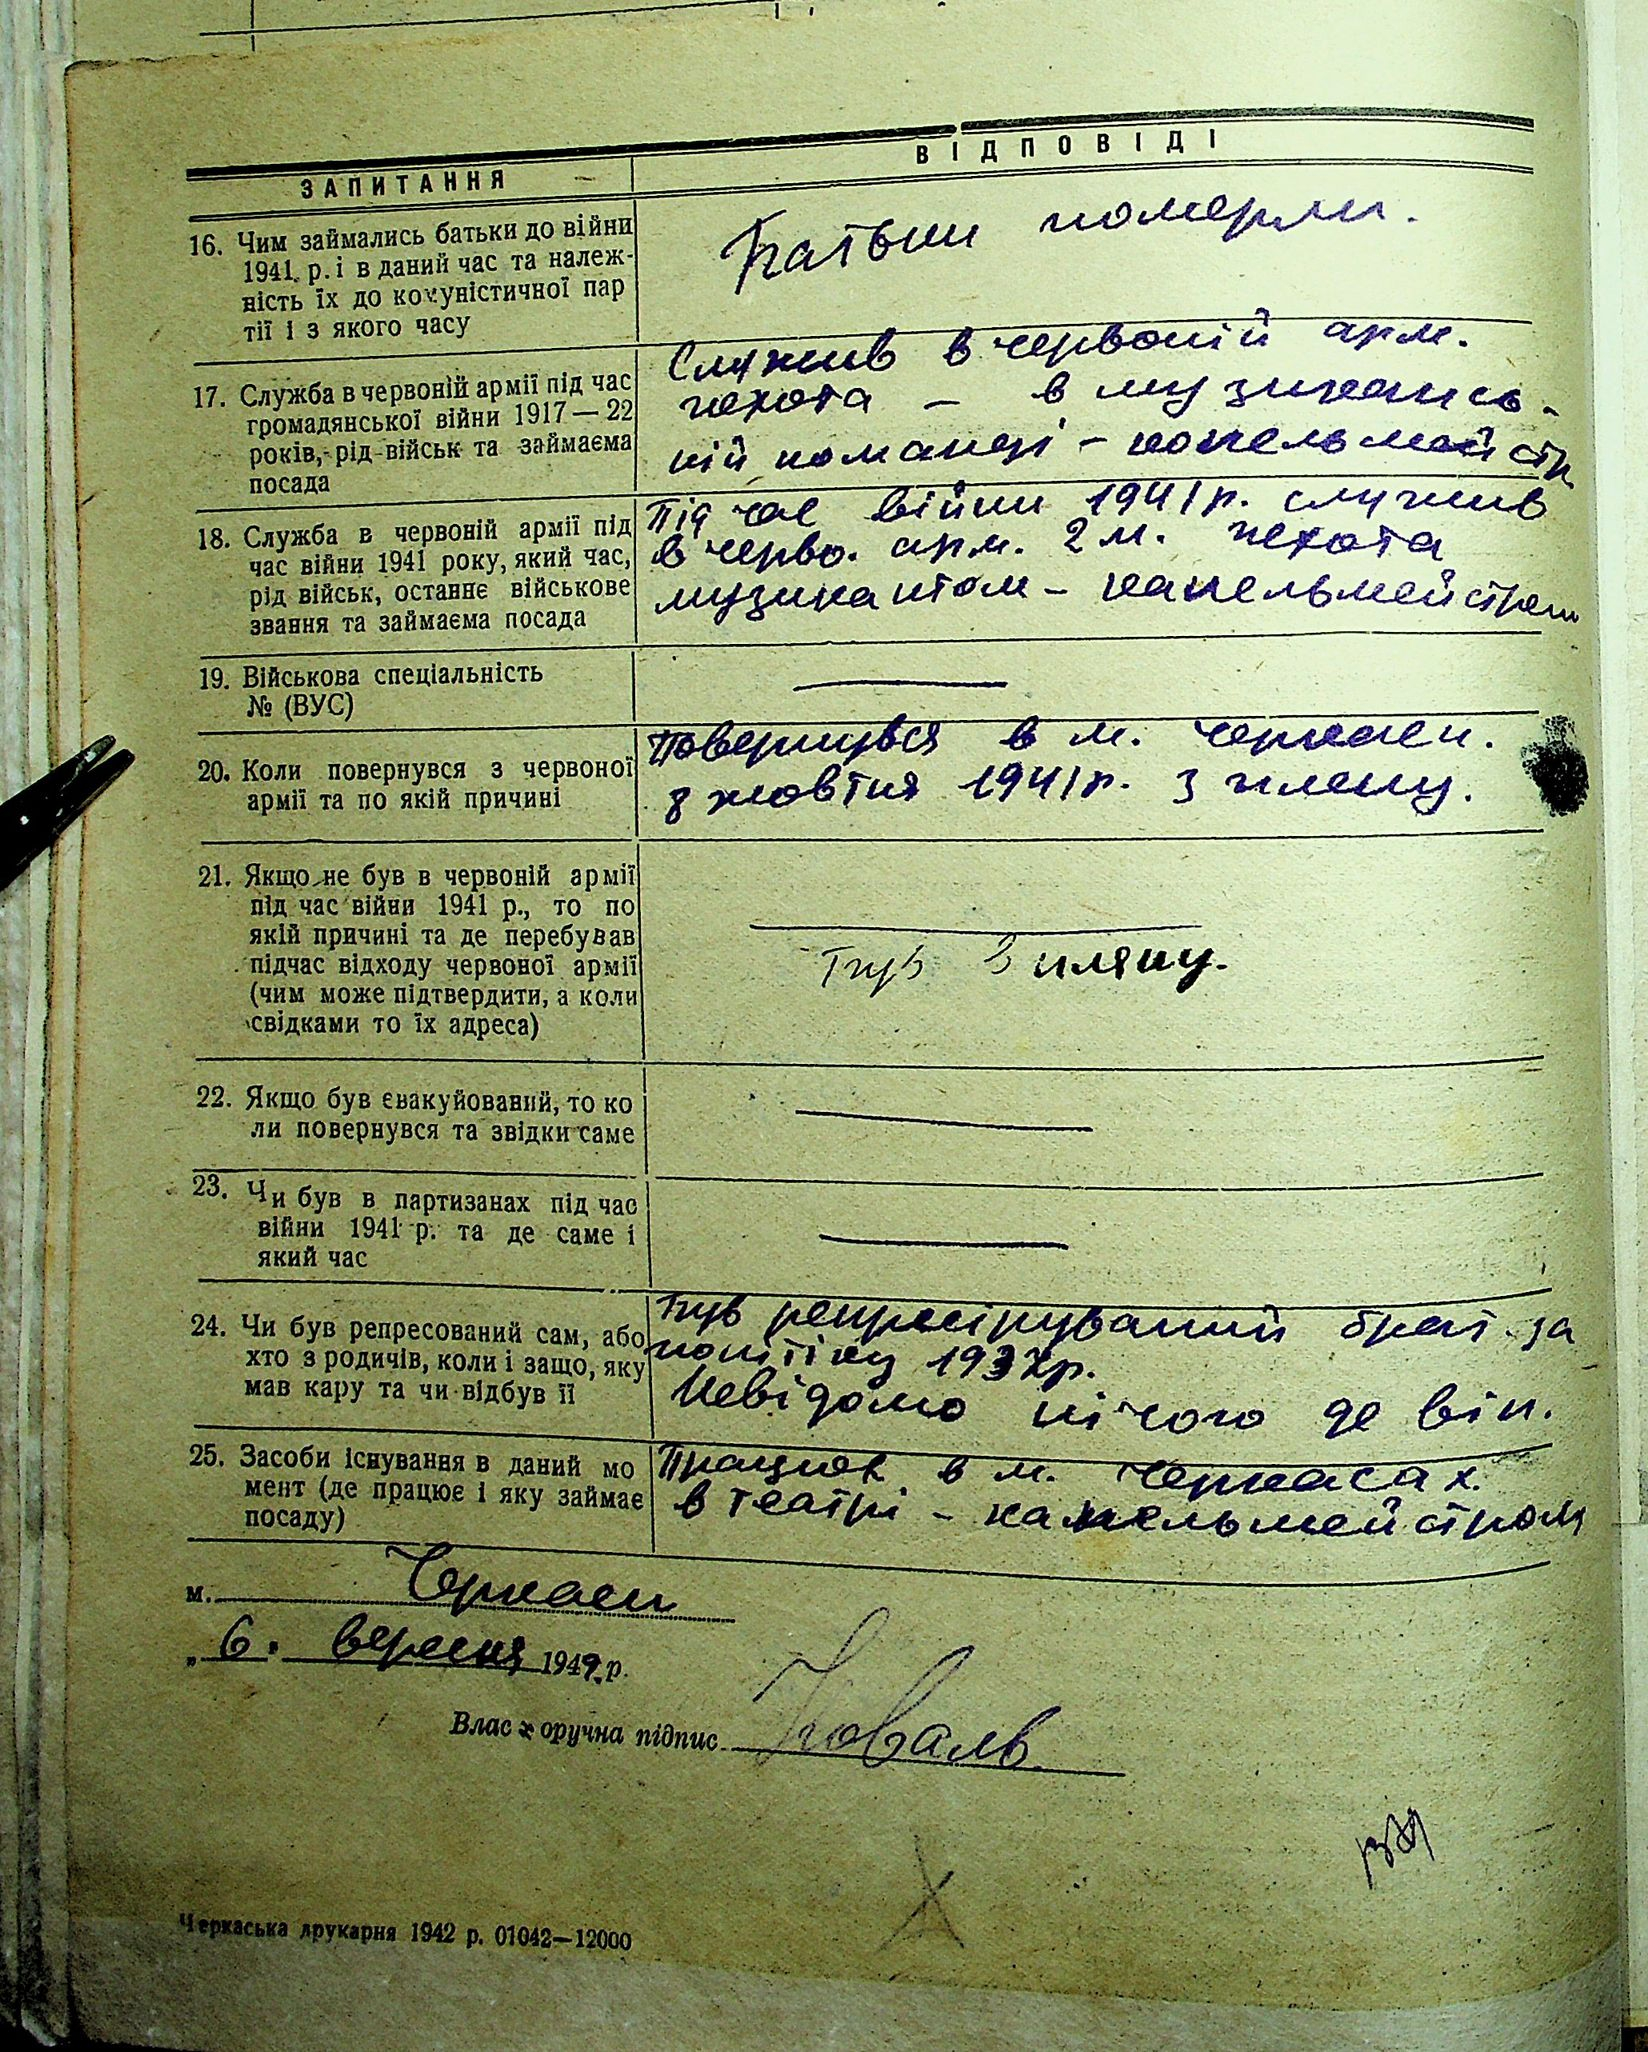 ЗАПИТАННЯ
ВІДПОВІДІ
16. Чим займались батьки до війни
1941. р. і в даний час та належ-
ність їх до комуністичної пар
тії і з якого часу
Батьки померли.
17. Служба в червоній армії під час
громадянської війни 1917—22
років, рід військ та займаєма
посада
Служив в червоній арм.
пехота – в музикансь-
кій команді – копельмейстр
18. Служба в червоній армії під
час війни 1941 року, який час,
рід військ, останнє військове
звання та займаєма посада
Під час війни 1941 р. служив
в черво. арм. 2 м. пехота
музикантом – капельмейстром
19. Військова спеціальність
№ (ВУС)
20. Коли повернувся з червоної
армії та по якій причині
Повернувся в м. Черкаси.
8 жовтня 1941 р. з плену.
21. Якщо не був в червоній армії
під час війни 1941 р., то по
якій причині та де перебував
підчас відходу червоної армії
(чим може підтвердити, а коли
свідками то їх адреса)
Був в пляну.
22. Якщо був евакуйований, то ко
ли повернувся та звідки саме
23. Чи був в партизанах під час
війни 1941 р. та де саме і
який час
24. Чи був репресований сам, або
хто з родичів, коли і защо, яку
мав кару та чи відбув її
Був репресірований брат за
політіку 1937 р.
Невідомо нічого де він.
25. Засоби існування в даний мо
мент (де працює і яку займає
посаду)
Працюю в м. Черкасах.
в театрі – капельмейстром
м. Черкаси
„ 6. вересня 1942 р.
Власноручна підпис Коваль
Черкаська друкарня 1942 р. 01042—12000